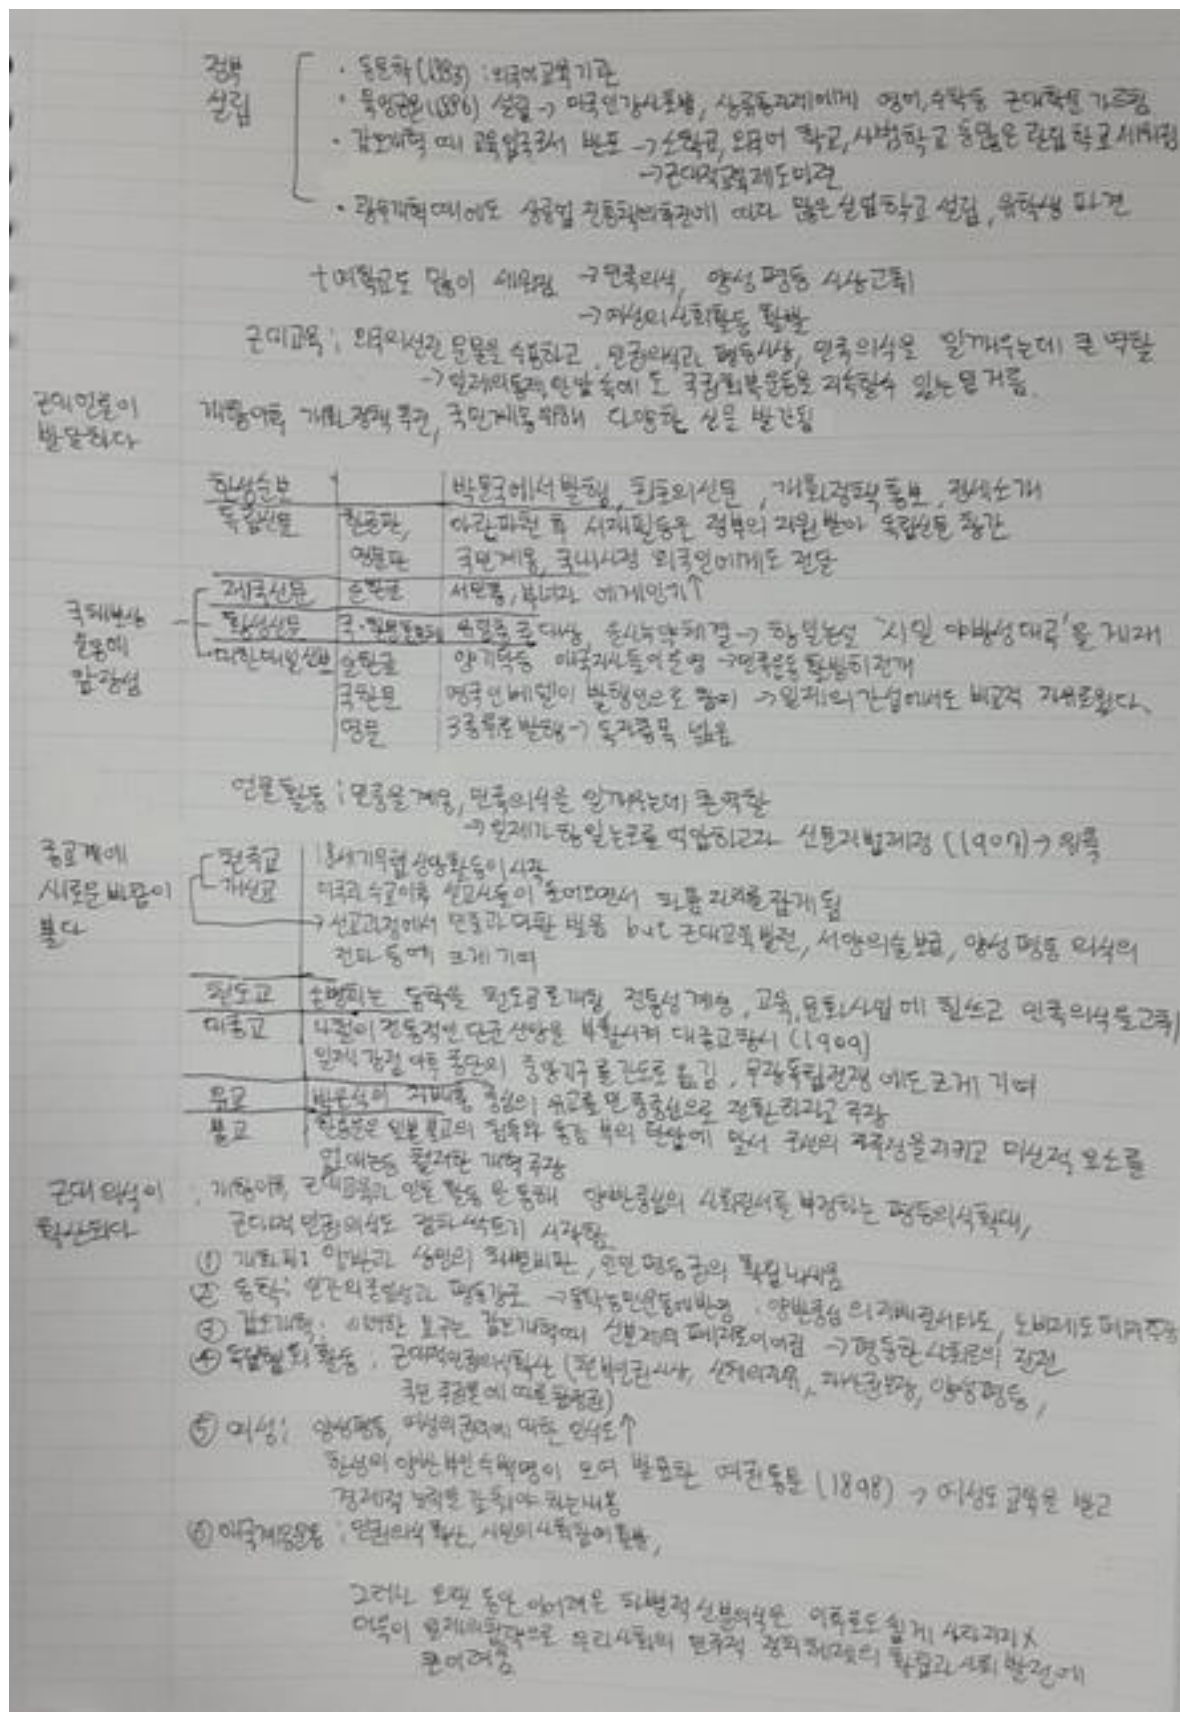 정부
설립
· 동문학(1883) : 외국어교육기관
· 육영공원(1886) 설립 → 미국인강사초빙, 상류층자제에게 영어, 수학등 근대학문 가르침
· 갑오개혁 때 교육입국조서 반포 → 소학교, 외국어 학교, 사범학교 등많은 관립 학교 세워짐
→ 근대적교육제도마련
· 광무개혁때에도 상공업 진흥책의 따라 많은실업학교 설립, 유학생 파견
+ 여학교도 많이 세워짐 → 민족의식, 양성 평등 사상고취
→ 여성의사회활동 활발
근대교육 ; 외국의선진 문물을 수용하고, 민권의식과 평등사상, 민족의식을 일깨우는데 큰 역할
→ 일제의통제, 탄압 속에 도 국권회복운동을 지속할수 있는 밑거름.
근대언론이
발달하다
개항이후 개화정책추진, 국민계몽위해 다양한 신문 발간됨
한성순보
박문국에서발행, 최초의신문, 개화정책홍보, 정세소개
독립신문
한글판,
아관파천 후 서재필등은 정부의 지원받아 독립신문 창간
영문판
국민계몽, 국내사정 외국인에게도 전달
국채보상
운동에
앞장섬
제국신문 순한글 서민층, 부녀자 에게인기↑
황성신문 국·한문혼용체 유림층 대상, 을사늑약체결 → 항일논설 '시일 야방성대곡'을 게재
대한매일신보 순한글 양기탁등 애국지사들이운영 → 민족운동 활발히전개
국한문 영국인베델이 발행인으로 참여 → 일제의간섭에서도 비교적 자유로웠다.
영문 3종류로발행 → 독자층폭 넓음
언론활동 ; 민중을계몽, 민족의식을 일깨우는데 큰역할
→ 일제가항일논조를 억압하고자 신문지법제정 (1907) → 위축
종교계에
새로운바람이
불다
천주교 18세기무렵신앙활동이시작
개신교 미국과 수교이후 선교사들이 들어오면서 자리를잡게됨
→ 선교과정에서 민중과 마찰 빚음 but 근대교육발전, 서양의술보급, 양성 평등 의식의
전파 등에 크게기여
천도교 손병희는 동학을 천도교로개칭 전통성계승, 교육, 문화사업에 힘쓰고 민족의식을고취
대종교 나철이 전통적인 단군 신앙을 부활시켜 대종교창시 (1909)
일제강점 이후 종단의 중앙기구를간도로 옮김, 무장독립전쟁에도크게 기여
유교 박은식이 지배층 중심의 유교를 민중중심으로 전환하자고 주장
불교 한용운은 일본불교의 침투와 통감부의 탄압에 맞서 조선의 지키고 미신적 요소를
없애는등 철저한 개혁주장
근대의식이
확산되다
; 개항이후 근대교육과 언론 활동을통해 양반중심의 사회질서를부정하는 평등의식확대,
근대적 민권의식도 점차싹트기 시작함
① 개화파: 양반과 상민의 차별비판, 인민평등권의 확립내세움
② 동학: 인간의존엄성과 평등강조 → 동학농민운동에반영 : 양반중심의지배질서타도, 노비제도폐지주장
③ 갑오개혁: 이러한 요구는 갑오개혁때 신분제의 폐지로이어짐 → 평등한사회로의 진전
④ 독립협회활동 : 근대적민권의식확산 (천부인권사상, 신체의자유, 재산권보장, 양성평등,
국민 주권론에 따른 참정권)
⑤ 여성: 양성평등, 여성의권익에 대한 인식도↑
한성의 양반부인수백명이 모여 발표한 여권통문 (1898) → 여성도교육을 받고
경제적 능력을 갖춰야 하는내용
⑥ 애국계몽운동 : 민권의식확산, 시민의사회참여활발,
그러나 오랜 동안 이어져온 차별적신분의식은 이후로도 쉽게 사라지지X
더욱이 일제의침략으로 우리사회의 민주적 정치체제의 확립과 사회 발전에
큰어려움